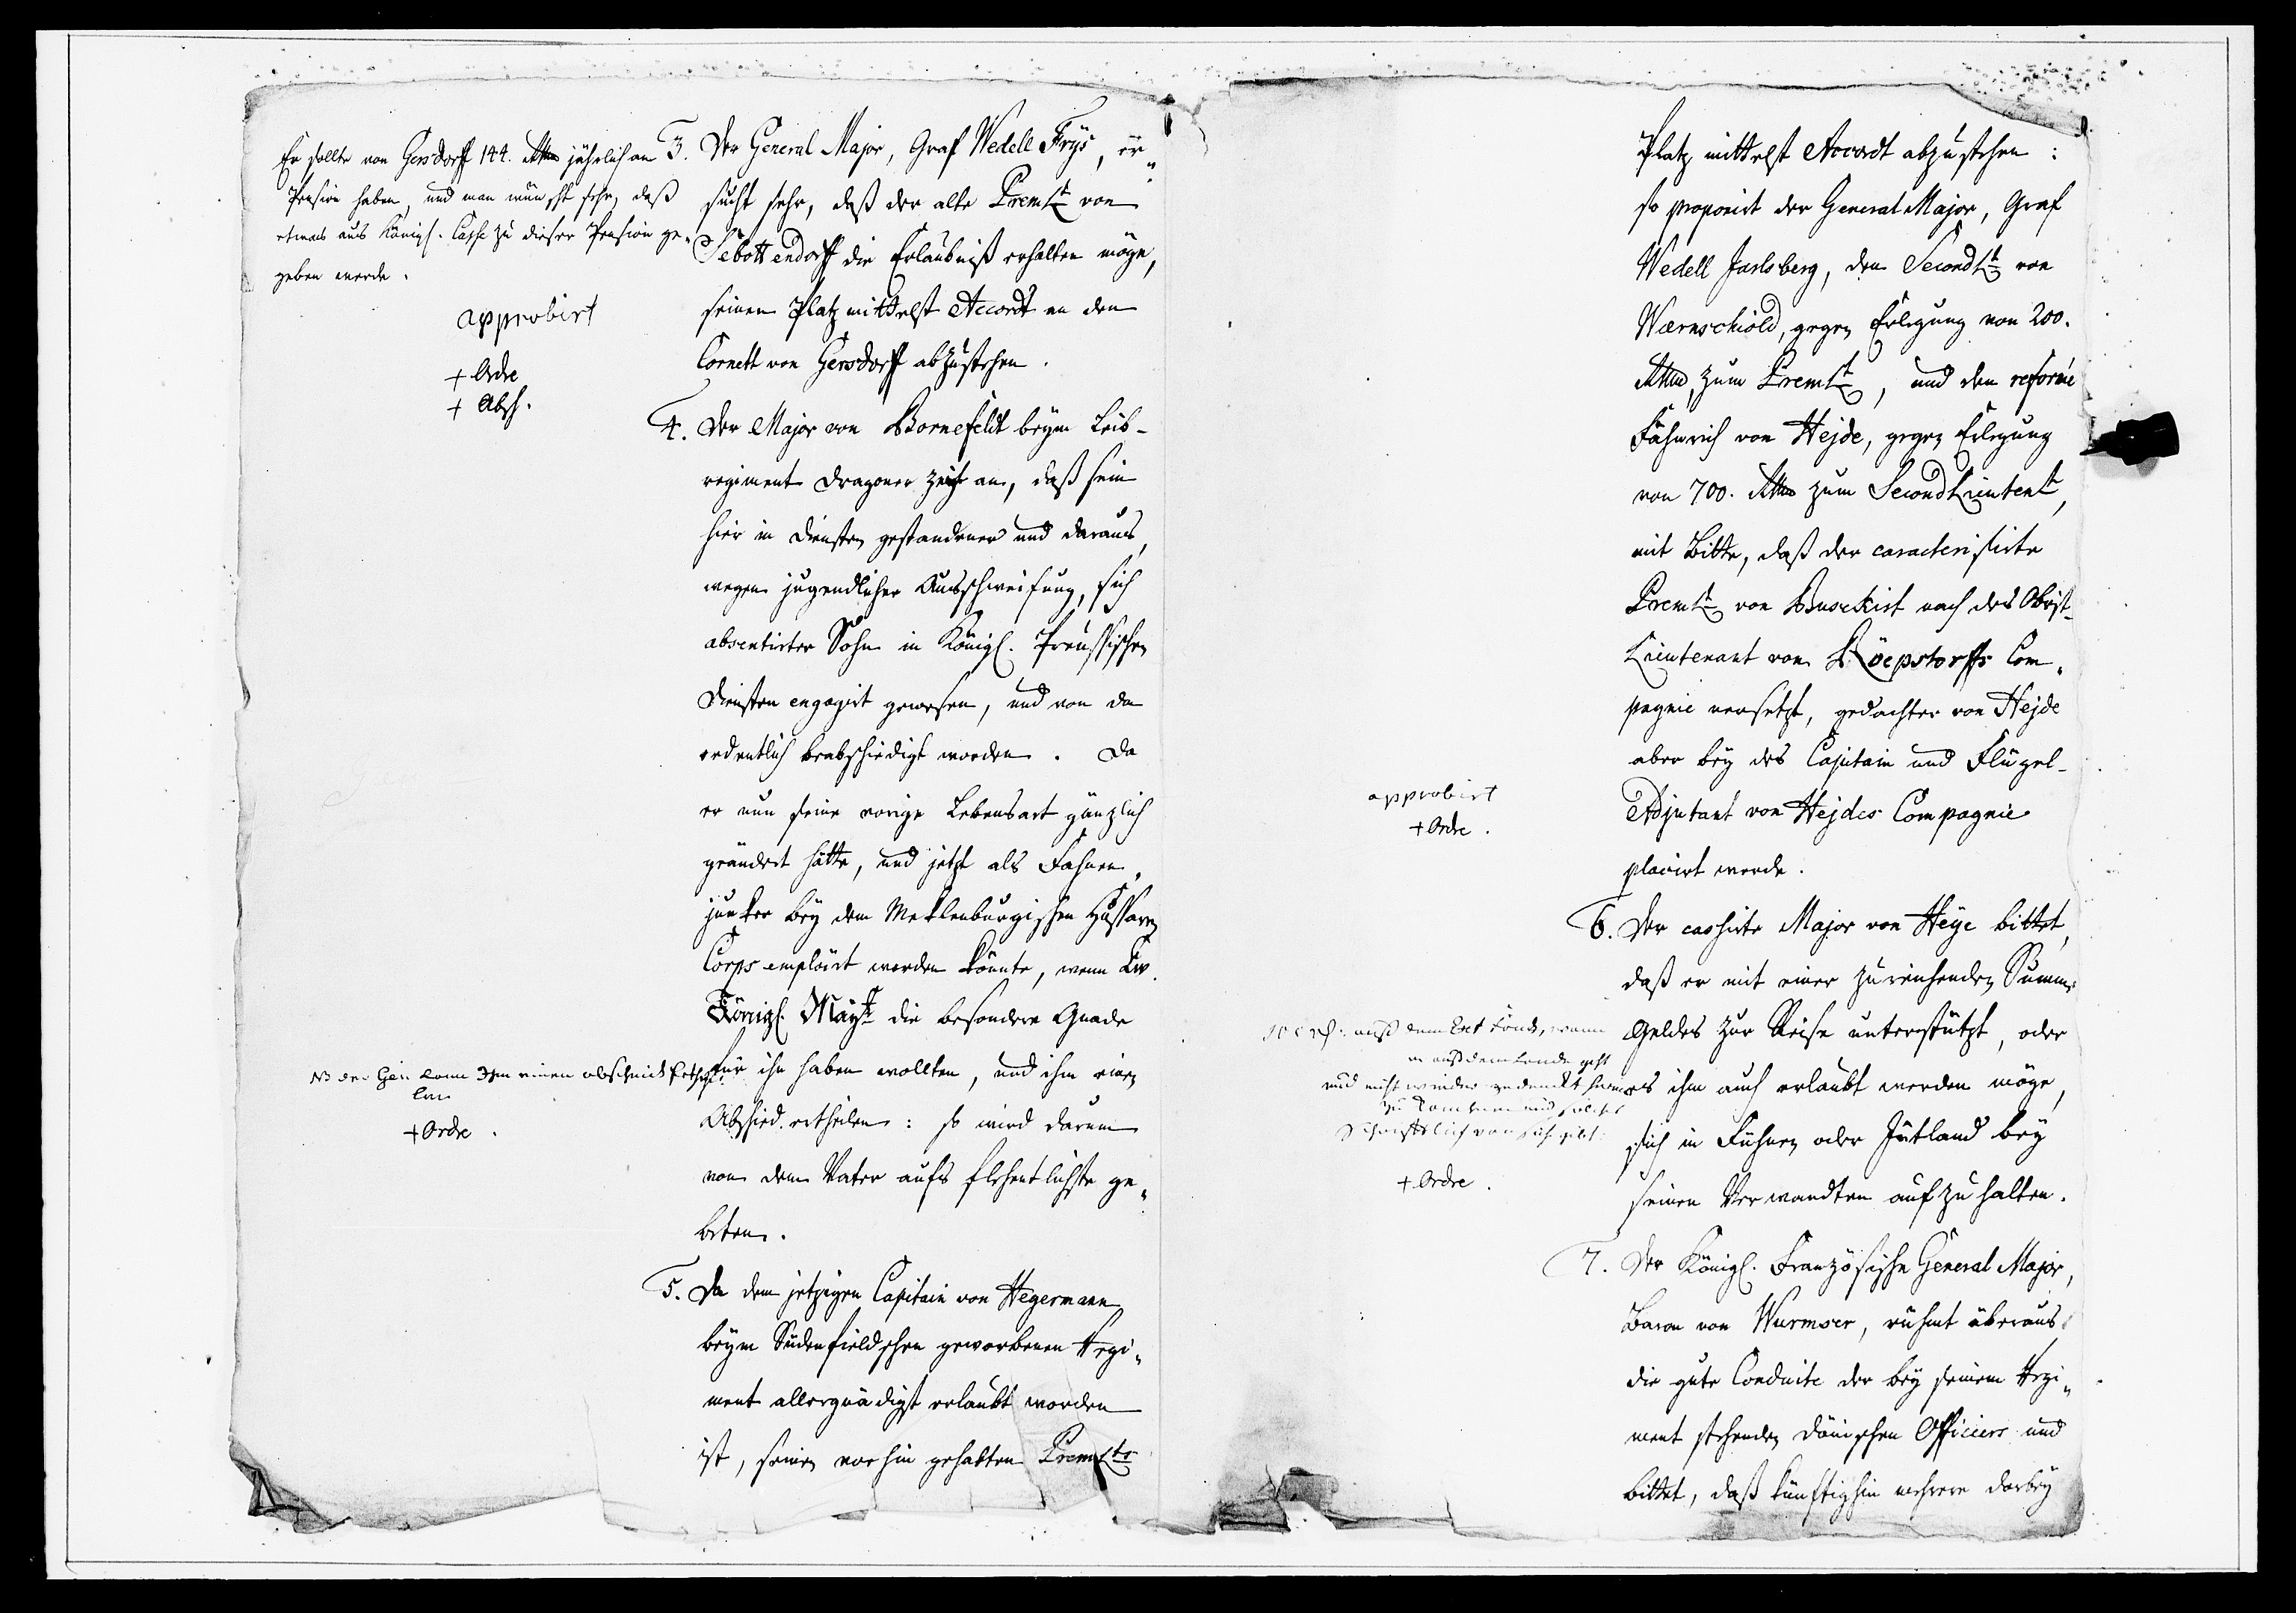 Er sollte von Gersdorff 144. Rthlr jährlich an
Pension haben, und man wünscht sehr, daß
etwas aus Königl. Casse zu dieser Pension ge-
geben werde.
approbirt
+ Ordre
+ Absch.
3. Der General Major, Graf Wedell Frÿs, er-
sucht sehr, daß der alte PremLt von
Sebottendorff die Erlaubniß erhalten möge,
seinen Platz mittelst Accordt an den
Cornett von Gersdorff abzustehen.
4. Der Major von Bornefeldt beym Leib-
regiment Dragoner zeigt an, daß sein
hier in Diensten gestandener und daraus,
wegen jugendlicher Ausschweifung, sich
absentirter Sohn in Königl. Preussischen
Diensten engagirt gewesen, und von da
ordentlich beabschiedigt worden. Da
er nun seine vorige Lebensart gänzlich
geändert hätte, und jetzt als Fahnen-
junker bey dem Meklenburgischen Hussaren
Corps emploirt werden könnte, wenn Ew.
Königl. Mayt die besondere Gnade
für ihn haben wollten, und ihm einen
Abschied ertheilen: so wird darum
von dem Vater aufs flehentlichste ge-
beten.
NB der Gen kann Ihm einen abschied
+ Ordre.
5. Da dem jetzigen Capitain von Hegermann
beym Südenfieldschen geworbenen Regi-
ment allergnädigst erlaubt worden
ist, seinen vorhin gehabten PremLts
Platz mittelst Accordt abzustehen:
so proponirt der General Major, Graf
Wedell Jarlsberg, den SecondLt von
Wærnschiold, gegen Erlegung von 200.
Rthlr, zum PremLt, und den reformé
Fähnrich von Hejde, gegen Erlegung
von 700. Rthlr zum SecondLieutent,
mit Bitte, daß der caracterisirte
PremLt von Buseckist nach des Obrist-
Lieutenant von Röepstorffs Com-
pagnie versetzt, gedachter von Hejde
aber bey des Capitain und Flügel-
Adjutant von Hejdes Compagnie
placirt werde.
approbirt
+ Ordre.
6. Der cassirte Major von Heÿe bittet,
daß er mit einer zureichenden Summe
Geldes zur Reise unterstützt, oder
es ihm auch erlaubt werden möge,
sich in Fühnen oder Jütland bey
seinen Verwandten aufzuhalten.
auß dem Ext Fond, wann
er auß dem Lande geht
und nicht wieder gedenckt herein
zu kommen und solches
Schriftlich von sich gibt.
+ Ordre.
7. Der Königl. Französische General Major,
Baron von Wurmser, rühmt überaus
die gute Conduite der bey seinem Regi-
ment stehenden dänischen Officiers und
bittet, daß künftighin mehrere darbey